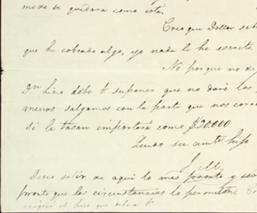 mera se quedara como está.
Creo que Dollar se
que he cobrado algo, ya nada le he escrito
No porque no de
Dn hizo debo suponer que no dará las
menos salgamos con la parte que nos
si le tasan importará como $20.000
Quedo su amto hijo
J. M.
Debe salir de aqui lo mas pronto y
pronto que las circunstancias lo permitan